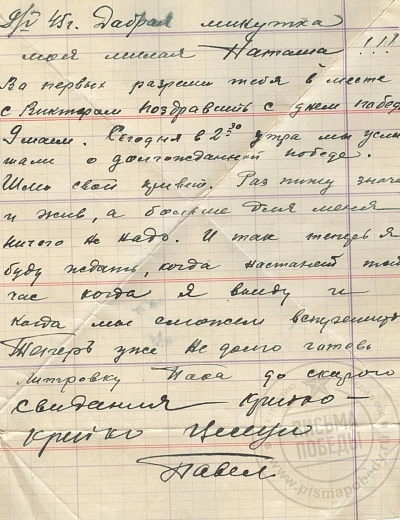 9/V 45г. Добрая минутка
моя милая Наташа !!!
Во первых разреши тебя в месте
с Виктором поздравить с днем победы
9 маем. Сегодня в 2 30 утра мы услы
шали о долгожданной победе.
Шлю свой привет. Раз пишу значит
и жив, а больше для меня
ничего не надо. И так теперь я
буду ждать, когда настанет той
час когда я выеду и
когда мы сможем встретиться
Теперь уже не долго готовь
литровку Пока до скорого
свидания Крепко-
крепко Целую
Павел
ПИСЬМА
ПОБЕДЫ
www.pismapobedy.ru